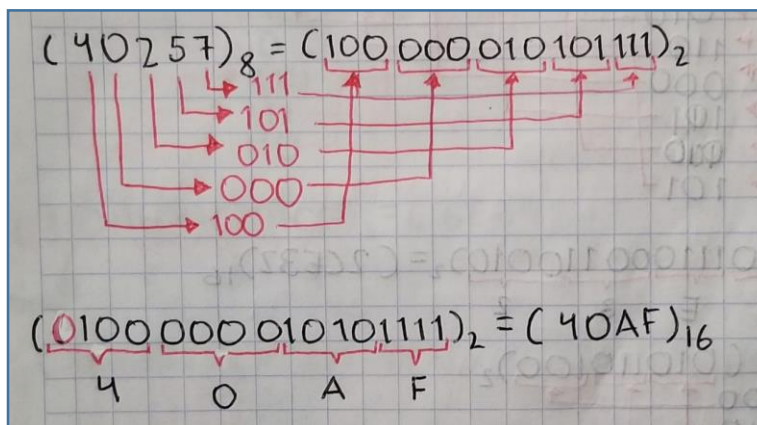 (40257)₈ = (100 000 010 101 111)₂
111
101
010
000
100
(0100 0000 1010 1111)₂ = (40AF)₁₆
4 0 A F